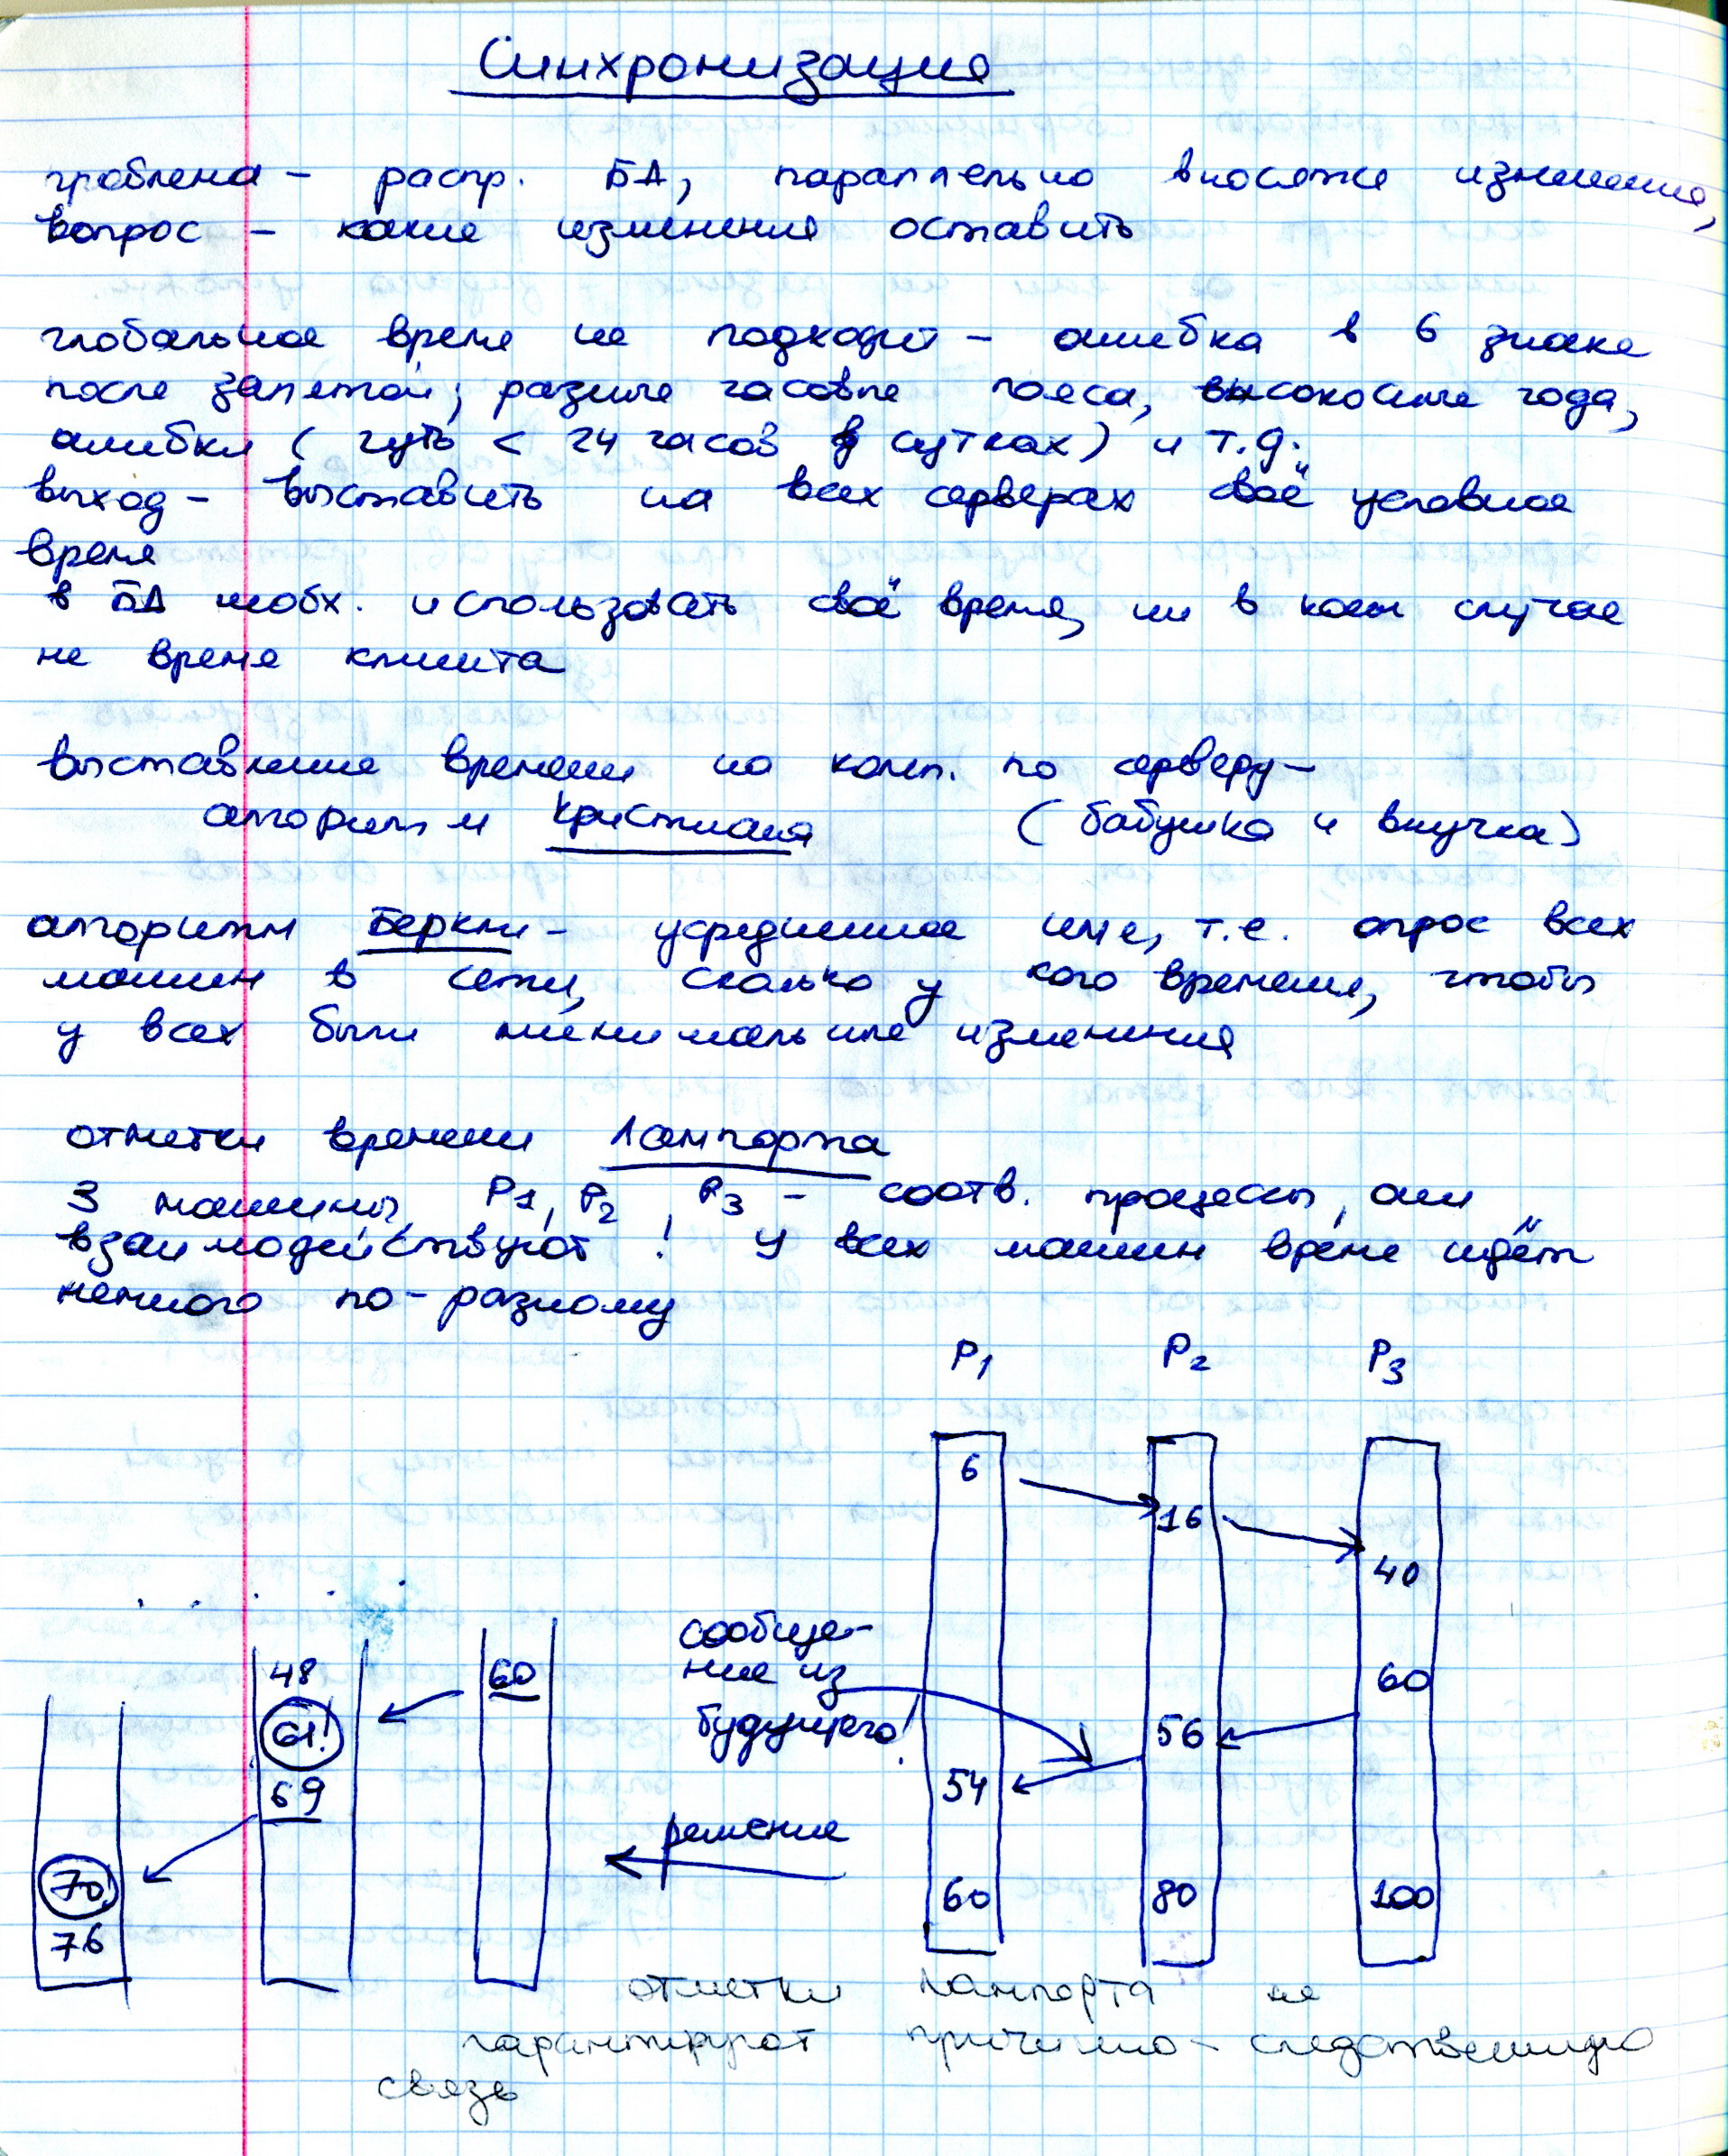 Синхронизация
проблема - распр. БД, параллельно вносятся изменения,
вопрос - какие изменения оставить
глобальное время не подходит - ошибка в 6 знаке
после запятой; разные часовые пояса, високосные года,
ошибки (чуть < 24 часов в сутках) и т.д.
выход - выставить на всех серверах своё условное
время
в БД необх. использовать своё время, ни в коем случае
не время клиента
выставление времени на комп. по серверу -
алгоритм Кристиана (бабушка и внучка)
алгоритм Беркли - усреднение, т.е. опрос всех
машин в сети, сколько у кого времени, чтобы
у всех были минимальные изменения
отметки времени Лампорта
3 машины, P1, P2, P3 - соотв. процессы, они
взаимодействуют! У всех машин время идёт
немного по-разному
P1 P2 P3
6
16
40
сообще-
ние из
будущего!
60
56
54
60 80 100
решение
60
48
61!
69
70!
76
отметки Лампорта не
гарантируют причинно-следственную
связь